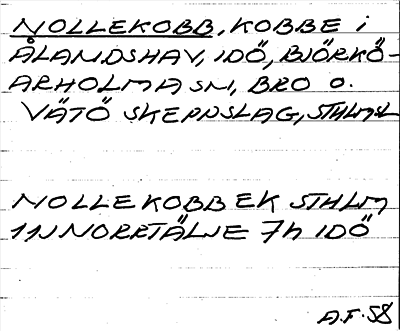 NOLLEKOBB, KOBBE i
ÅLANDSHAV, IDÖ, BJÖRKÖ-
ARHOLMA SN, BRO O.
VÄTÖ SKEPPSLAG, STHLMSL
NOLLEKOBB EK STHLM
11J NORRTÄLJE 7h IDÖ
A.F. 58